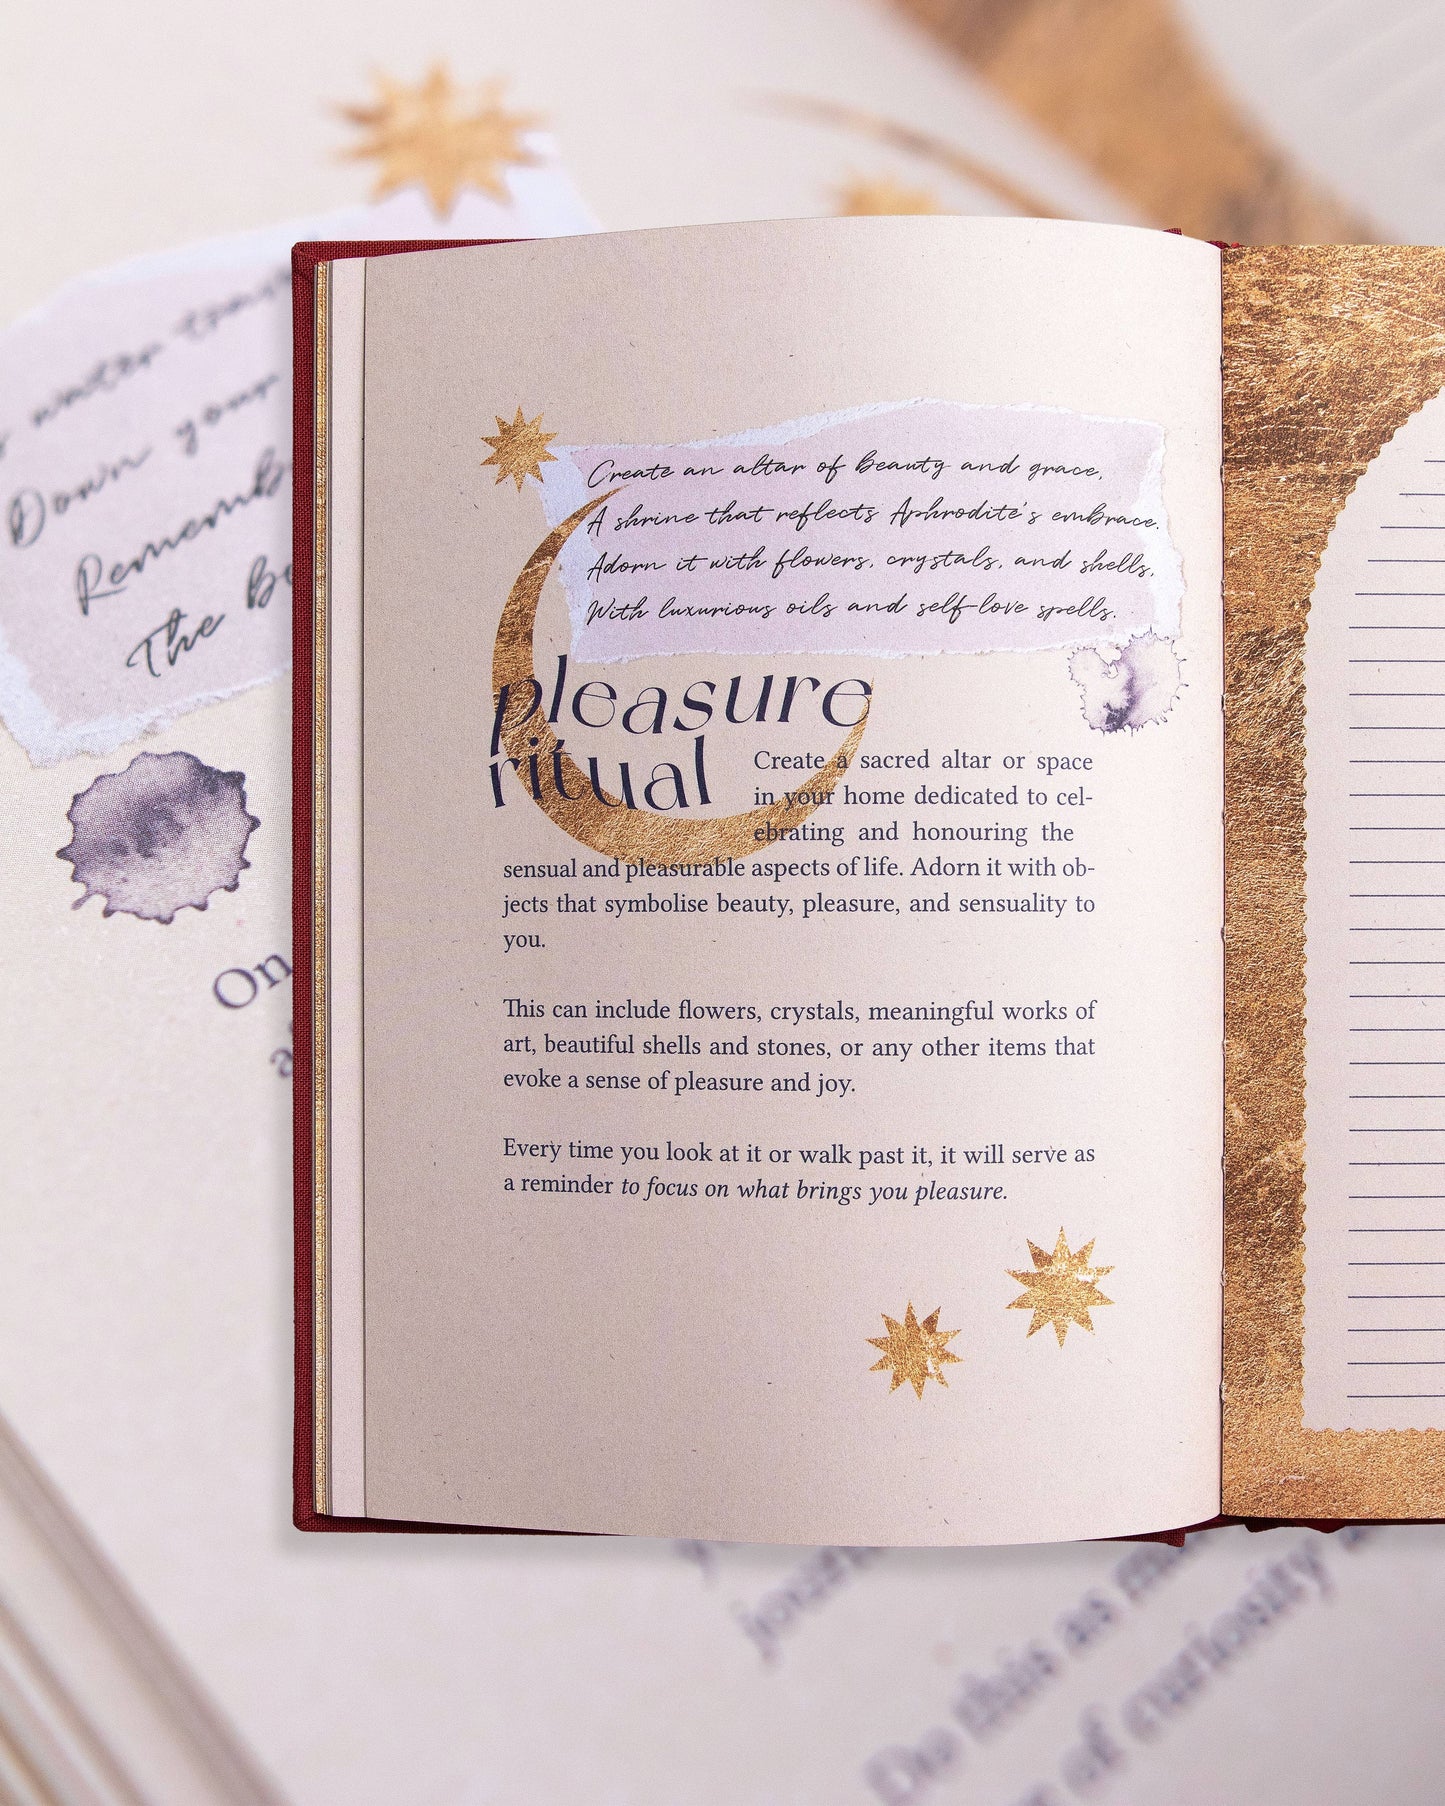 water
Down your
Rememb
The be
Create an altar of beauty and grace,
A shrine that reflects Aphrodite's embrace.
Adorn it with flowers, crystals, and shells,
With luxurious oils and self-love spells.
pleasure
ritual
Create a sacred altar or space
in your home dedicated to cel-
ebrating and honouring the
sensual and pleasurable aspects of life. Adorn it with ob-
jects that symbolise beauty, pleasure, and sensuality to
you.
This can include flowers, crystals, meaningful works of
art, beautiful shells and stones, or any other items that
evoke a sense of pleasure and joy.
Every time you look at it or walk past it, it will serve as
a reminder to focus on what brings you pleasure.
On
a
Do this as
of curiosity